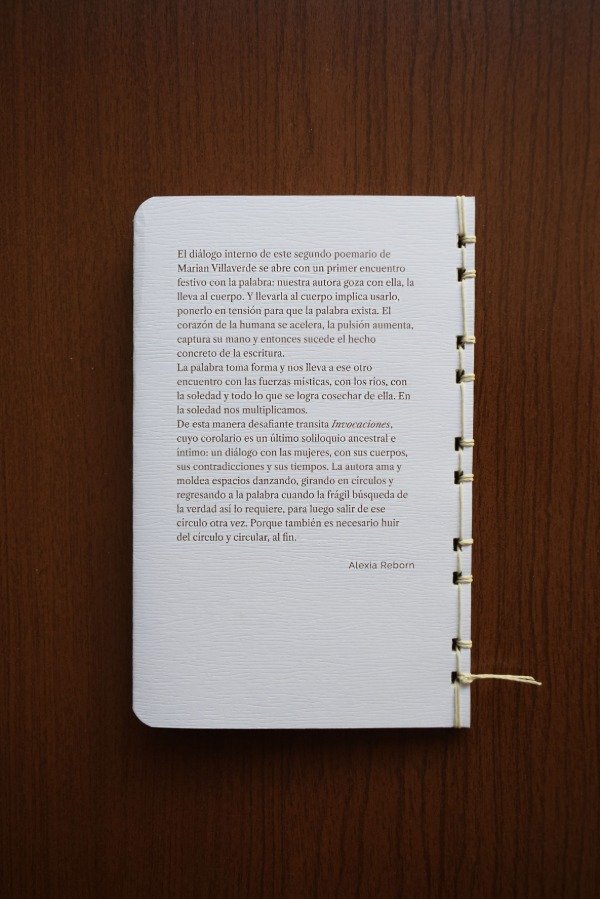 El diálogo interno de este segundo poemario de
Marian Villaverde se abre con un primer encuentro
festivo con la palabra: nuestra autora goza con ella, la
lleva al cuerpo. Y llevarla al cuerpo implica usarlo,
ponerlo en tensión para que la palabra exista. El
corazón de la humana se acelera, la pulsión aumenta,
captura su mano y entonces sucede el hecho
concreto de la escritura.
La palabra toma forma y nos lleva a ese otro
encuentro con las fuerzas místicas, con los ríos, con
la soledad y todo lo que se logra cosechar de ella. En
la soledad nos multiplicamos.
De esta manera desafiante transita Invocaciones,
cuyo corolario es un último soliloquio ancestral e
íntimo: un diálogo con las mujeres, con sus cuerpos,
sus contradicciones y sus tiempos. La autora ama y
moldea espacios danzando, girando en círculos y
regresando a la palabra cuando la frágil búsqueda de
la verdad así lo requiere, para luego salir de ese
círculo otra vez. Porque también es necesario huir
del círculo y circular, al fin.
Alexia Reborn